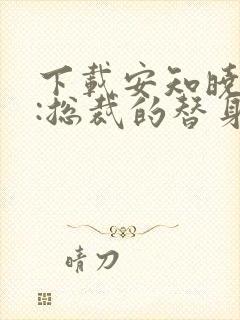 下載安知晓
:总裁的替身
晴刀